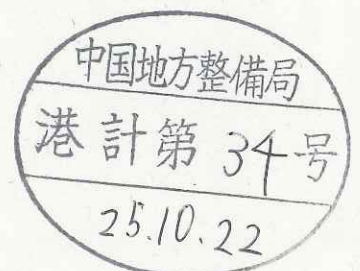 中国地方整備局
港計第34号
25.10.22